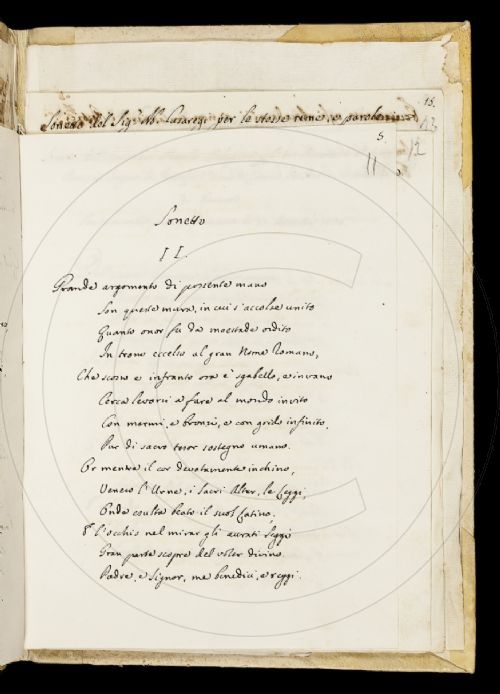 15.
Sonetto del Sigr. Ab. Casaregi per le stesse rime, e parole
13
5.
11
12
Sonetto
II.
Grande argomento di possente mano
Son queste mura, in cui s'accolse unito
Quanto onor fu da maestade ordito
In trono eccelso al gran Nome Romano,
Che scosso e infranto ora è sgabello, e invano
Cerca levarsi e fare al mondo invito
Con marmi, e bronzi, e con grido infinito,
Pur di sacro tesor sostegno umano.
Or mentre il cor devotamente inchino,
Venero l'Urne, i sacri Altar, le Leggi,
Onde esulta beato il suol Latino;
E l'occhio nel mirar gli aurati seggi
Gran parte scopre del voler divino.
Padre, e Signor, me benedici, e reggi.